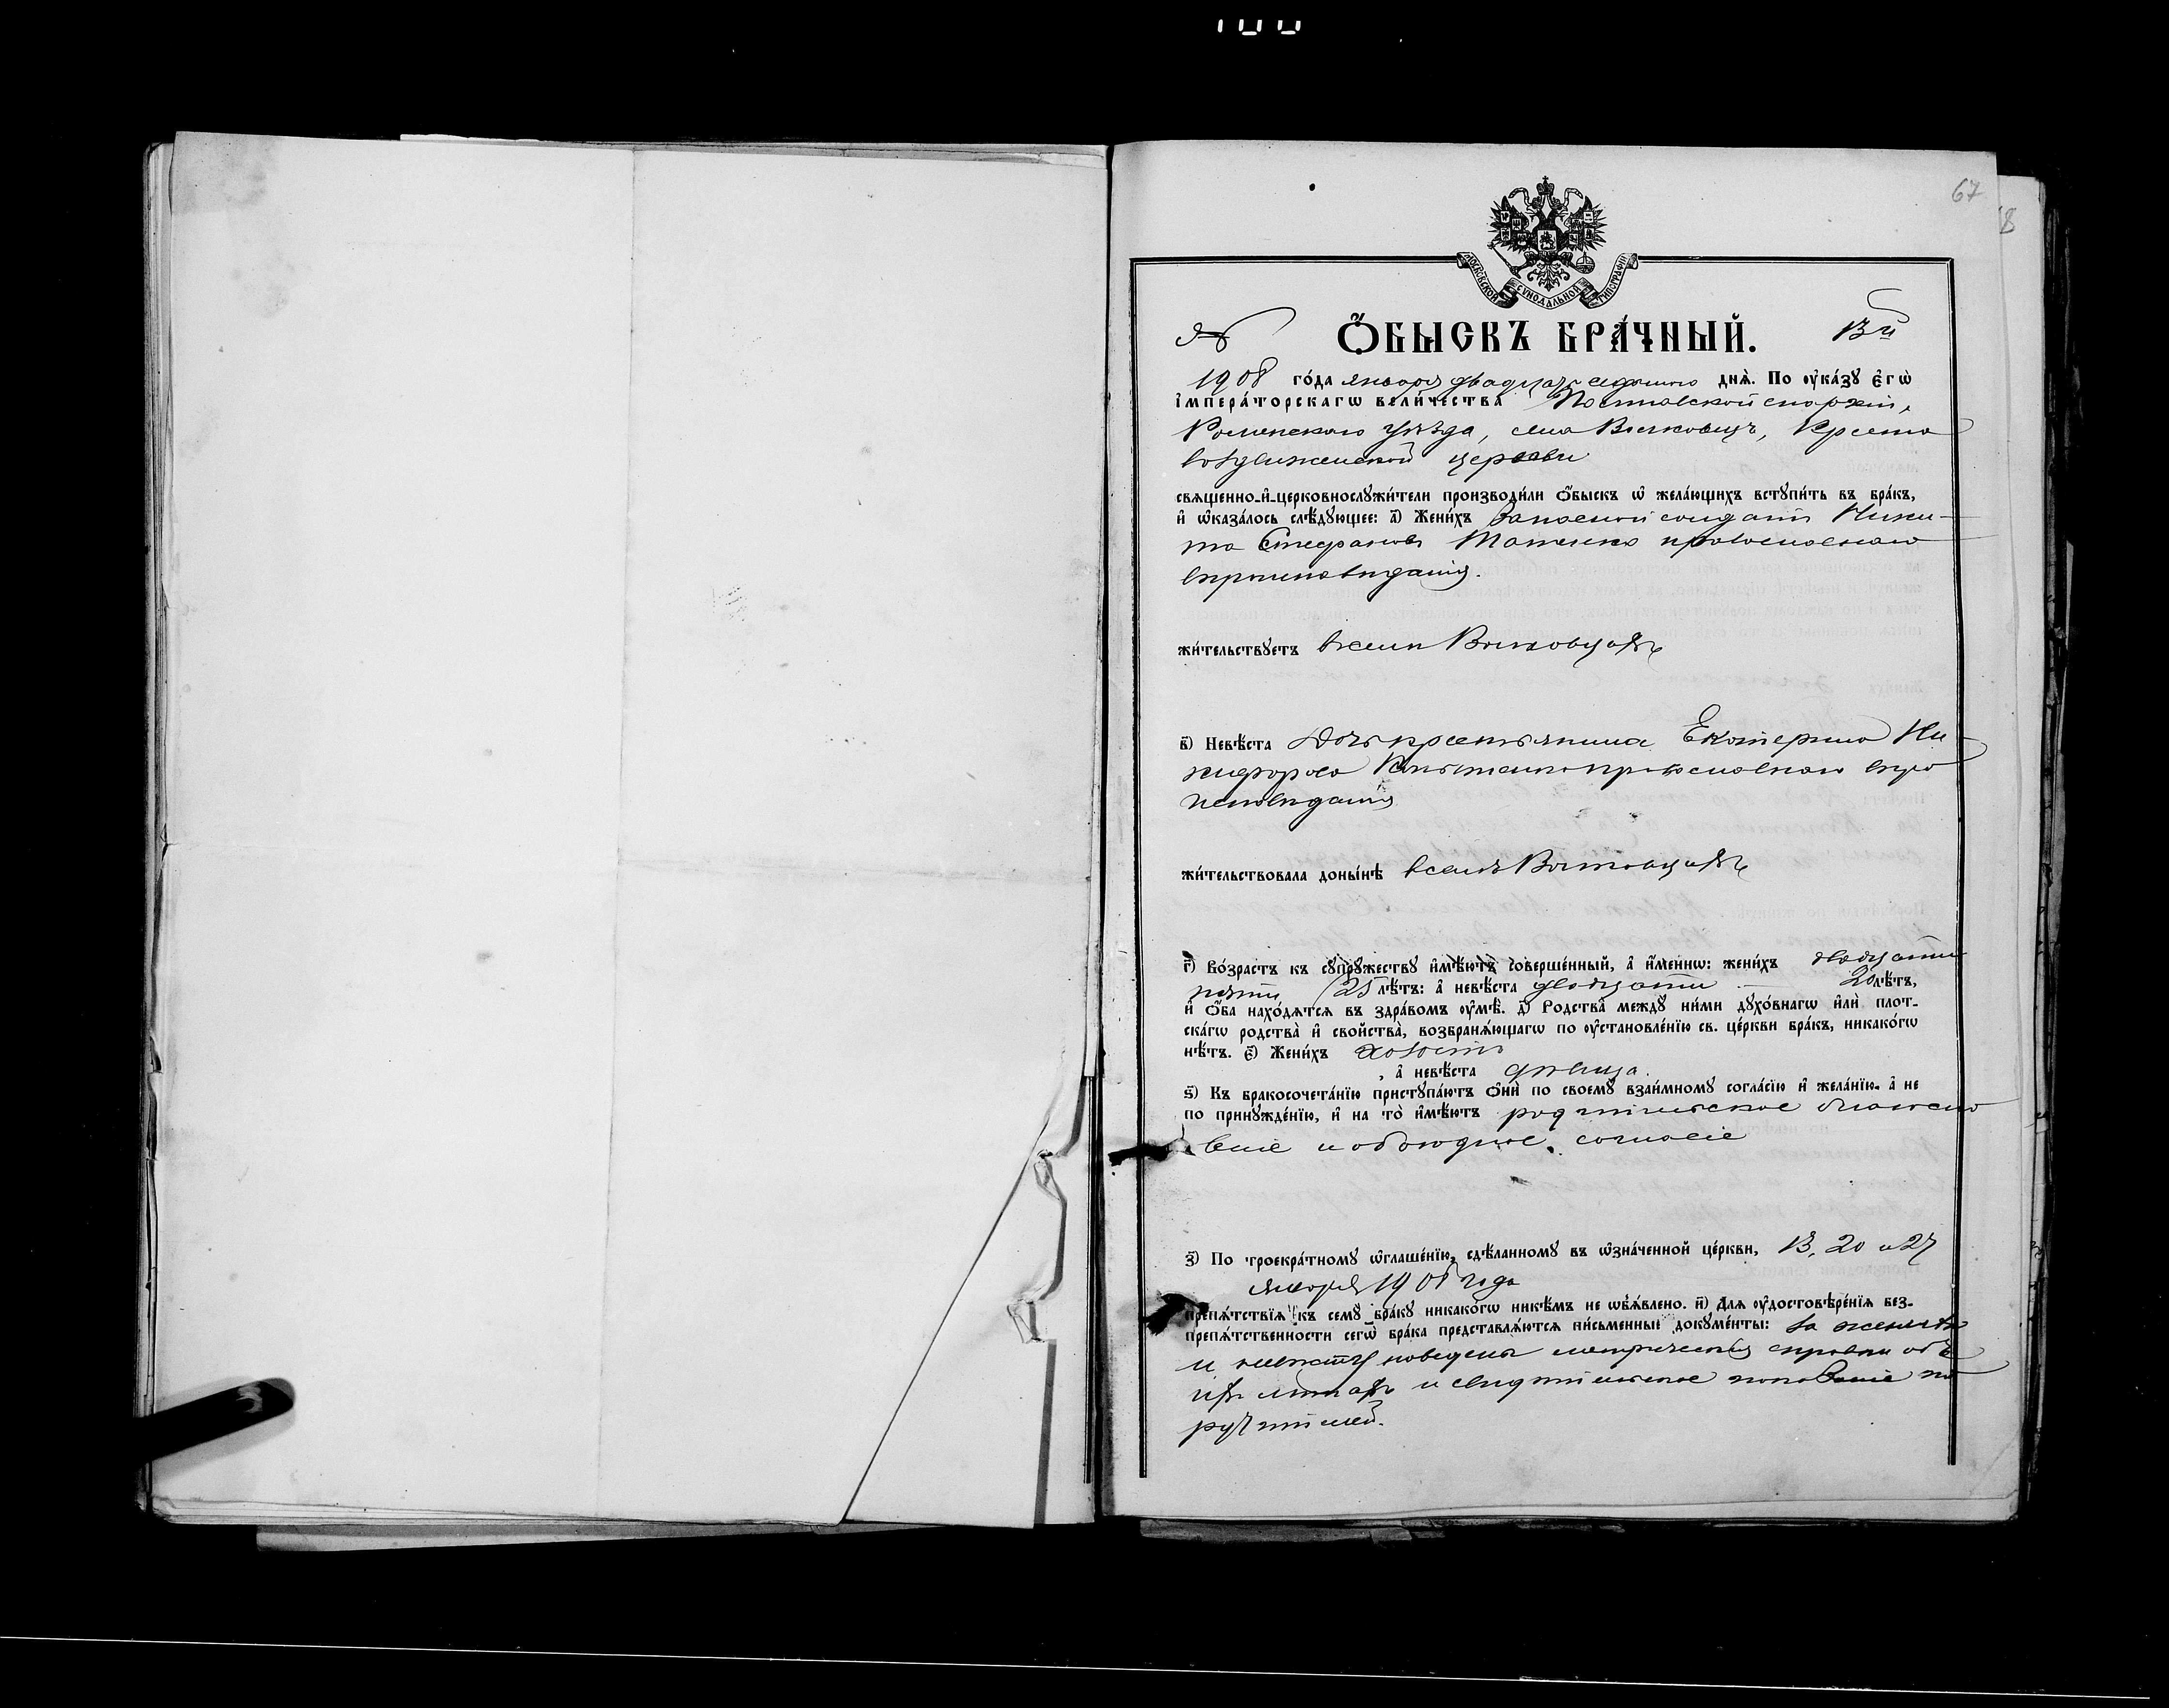 67
МОСКОВСКОЙ СѴНОДАЛЬНОЙ ТИПОГРАФІИ
№ Ѻ҆БЫСКЪ БРА́ЧНЫЙ. 13й
1908 го́да января двадцать седьмого днѧ̀. По ᲂу҆ка́зꙋ є҆гѡ̀
і҆мпера́торскагѡ вели́чества Полтавской епархіи,
Роменскаго уѣзда, села Волковецъ, Кресто
воздвиженской церкви
свѧщенно-и҆-церковнослꙋжи́тели производи́ли ѻ҆́быскъ ѡ҆ жела́ющихъ встꙋпи́ть въ бра́къ,
и҆ ѡ҆каза́лось слѣ́дꙋющее: а҃) Жени́хъ Запасной солдатъ Ники-
та Стефановъ православнаго
вѣроисповѣданія.
жи́тельствꙋетъ въ селѣ Волковцахъ
в҃) Невѣ́ста Дочь крестьянина Екатерина Ни-
кифорова православнаго вѣро
исповѣданія
жи́тельствовала доны́нѣ въ селѣ Волковцахъ
г҃) Во́зрастъ къ сꙋпрꙋ́жествꙋ и҆мѣ́ютъ соверше́нный, а҆ и҆́меннѡ: жени́хъ двадцати
пяти (25 лѣ́тъ: а҆ невѣ́ста двадцати 20 лѣ́тъ,
и҆ ѻ҆́ба нахо́дѧтсѧ въ здра́вомъ ᲂу҆мѣ̀. д҃) Родства̀ междꙋ̀ ни́ми дꙋхо́внагѡ и҆лѝ плот-
ска́гѡ родства̀ и҆ свойства̀, возбранѧ́ющагѡ по ᲂу҆становле́нїю св. це́ркви бра́къ, никако́гѡ
нѣ́тъ. є҃) Жени́хъ холостъ
, а҆ невѣ́ста дѣвица.
ѕ҃) Къ бракосочета́нїю пристꙋпа́ютъ ѻ҆нѝ по своемꙋ̀ взаи́мномꙋ согла́сїю и҆ жела́нїю, а҆ не
по принꙋжде́нїю, и҆ на то̀ и҆мѣ́ютъ родительское благосло
веніе и обоюдное согласіе
з҃) По троекра́тномꙋ ѡ҆глаше́нїю, сдѣ́ланномꙋ въ ѡ҆зна́ченной це́ркви, 13, 20 и 27
января 1908 года
препѧ́тствїѧ къ семꙋ̀ бра́кꙋ никако́гѡ никѣ́мъ не ѡ҆б̾ѧ́влено. и҃) Длѧ ᲂу҆достовѣре́нїѧ без-
препѧ́тственности сегѡ̀ бра́ка представлѧ́ютсѧ пи́сьменные докꙋме́нты: за жениха
и невѣсту наведены метрическія справки объ
ихъ лѣтахъ и свидѣтельское показаніе по
ручителей.